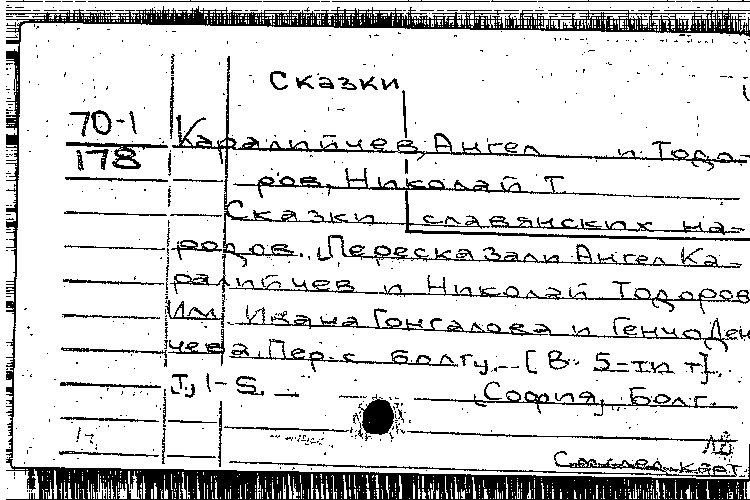 Сказки
70-1
178
Каралийчев, Ангел и Тодо-
ров, Николай Т.
Сказки славянских на-
родов. Пересказали Ангел Ка-
ралийчев и Николай Тодоров
Илл. Ивана Гонгалова и Генчо Ден
чева. Пер. с болг. [В 5-ти т].
Т. 1-5. —
София, Болг.
След. карт.